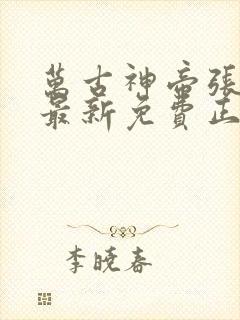 萬古神帝張
最新免費正
李曉春